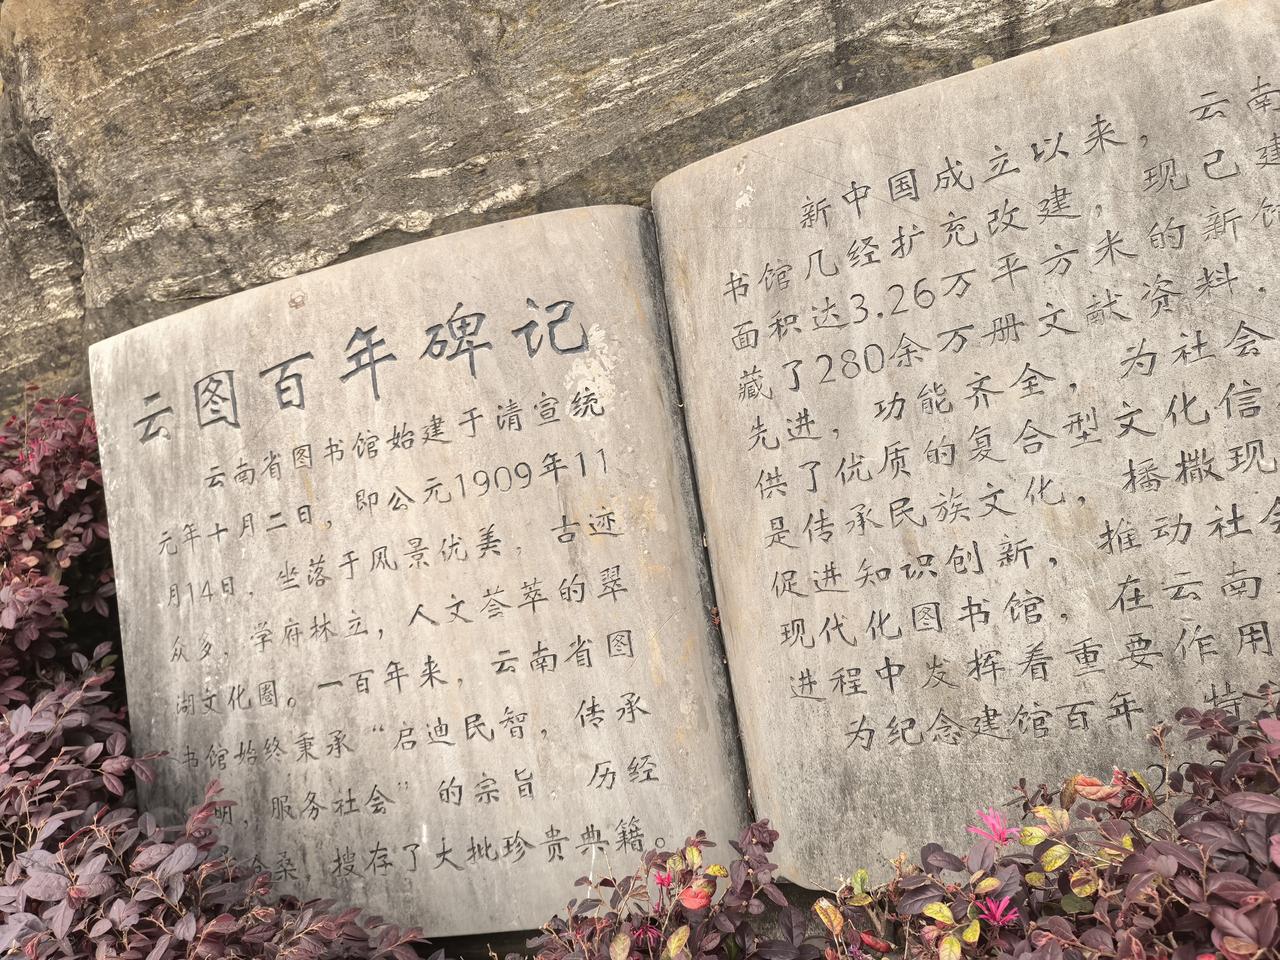 云图百年碑记
云南省图书馆始建于清宣统
元年十月二日，即公元1909年11
月14日，坐落于风景优美，古迹
众多，学府林立，人文荟萃的翠
湖文化圈。一百年来，云南省图
书馆始终秉承“启迪民智，传承
明，服务社会”的宗旨，历经
沧桑，搜存了大批珍贵典籍。
新中国成立以来，云南
书馆几经扩充改建，现已建
面积达3.26万平方米的新馆
藏了280余万册文献资料，
先进，功能齐全，为社会
供了优质的复合型文化信
是传承民族文化，播撒现
促进知识创新，推动社会
现代化图书馆，在云南
进程中发挥着重要作用
为纪念建馆百年，特